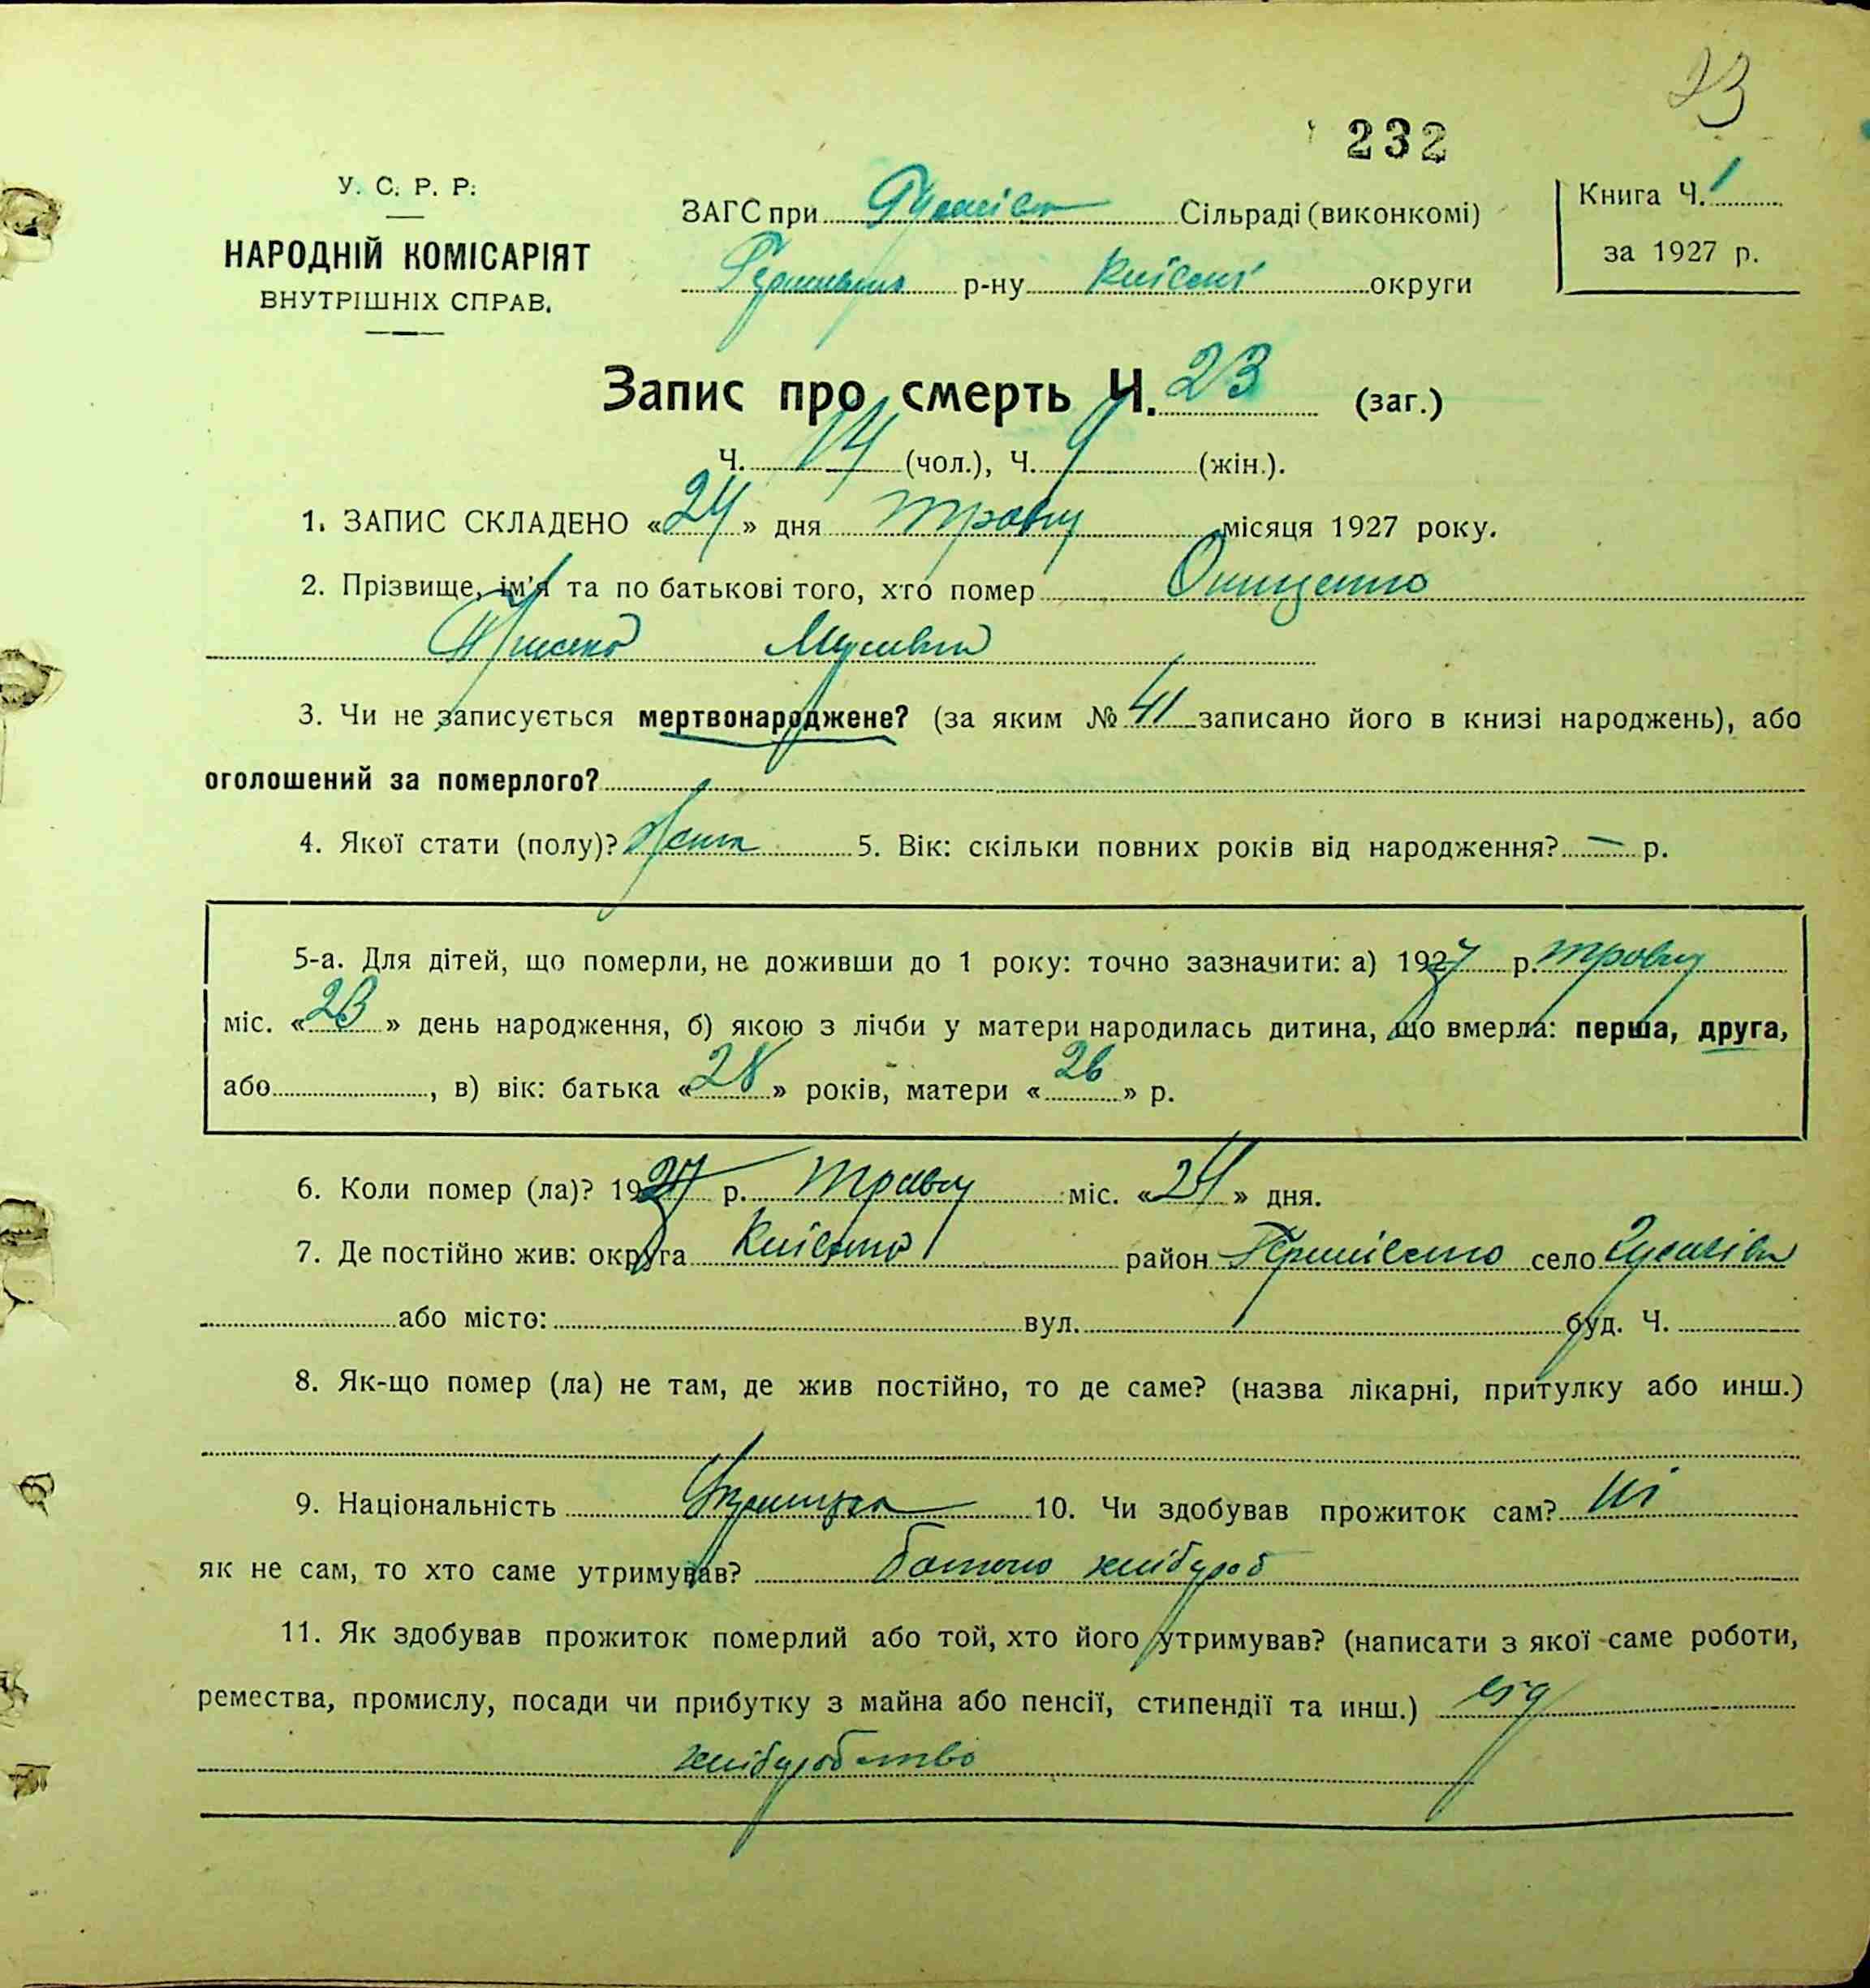 23
232
У. С. Р. Р.
НАРОДНІЙ КОМІСАРІЯТ
ВНУТРІШНІХ СПРАВ.
ЗАГС при Сільраді (виконкомі)
р-ну округи
Книга Ч. 1
за 1927 р.
Запис про смерть Ч. 23 (заг.)
Ч. 14 (чол.), Ч. 9 (жін.).
1. ЗАПИС СКЛАДЕНО «24» дня травня місяця 1927 року.
2. Прізвище, ім'я та по батькові того, хто помер Онищенко
3. Чи не записується мертвонароджене? (за яким № 41 записано його в книзі народжень), або
оголошений за померлого?
4. Якої стати (полу)? 5. Вік: скільки повних років від народження? — р.
5-а. Для дітей, що померли, не доживши до 1 року: точно зазначити: а) 1927 р. травня
міс. «23» день народження, б) якою з лічби у матери народилась дитина, що вмерла: перша, друга,
або , в) вік: батька «28» років, матери «26» р.
6. Коли помер (ла)? 1927 р. травня міс. «24» дня.
7. Де постійно жив: округа район село
або місто: вул. буд. Ч.
8. Як-що помер (ла) не там, де жив постійно, то де саме? (назва лікарні, притулку або инш.)
9. Національність 10. Чи здобував прожиток сам? ні
як не сам, то хто саме утримував? батько хлібороб
11. Як здобував прожиток померлий або той, хто його утримував? (написати з якої саме роботи,
ремества, промислу, посади чи прибутку з майна або пенсії, стипендії та инш.) від
хліборобства